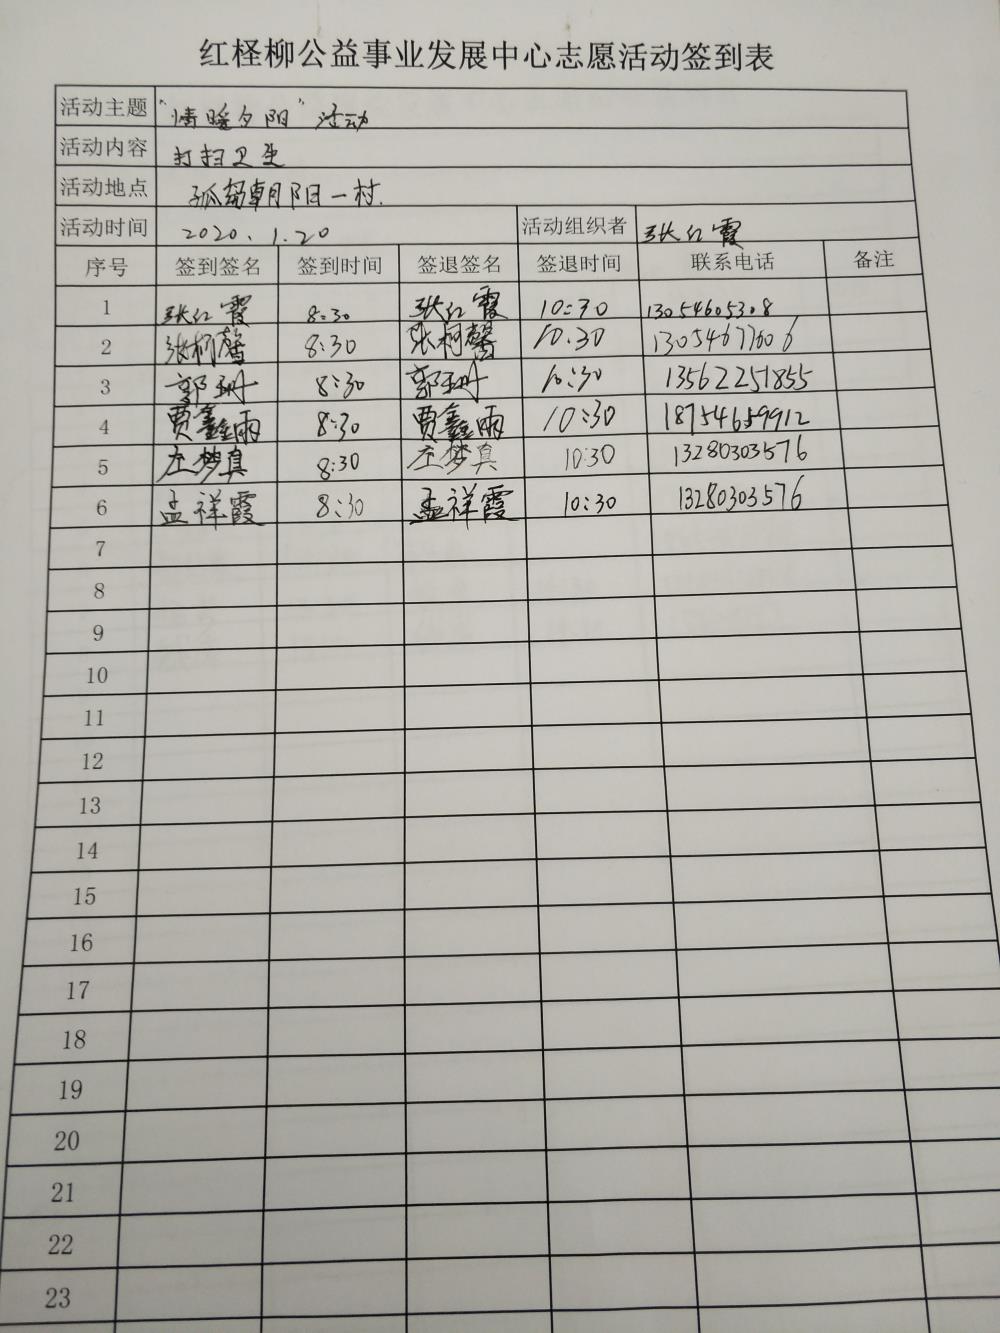 红柽柳公益事业发展中心志愿活动签到表
活动主题 "情暖夕阳"活动
活动内容 打扫卫生
活动地点 孤岛朝阳一村.
活动时间 2020.1.20 活动组织者 张红霞
序号 签到签名 签到时间 签退签名 签退时间 联系电话 备注
1 张红霞 8:30 张红霞 10:30 13054605308
2 张柯馨 8:30 张柯馨 10:30 13054677606
3 郭珊 8:30 郭珊 10:30 13562251855
4 贾鑫雨 8:30 贾鑫雨 10:30 18754659912
5 庄梦真 8:30 庄梦真 10:30 13280303576
6 孟祥霞 8:30 孟祥霞 10:30 13280303576
7
8
9
10
11
12
13
14
15
16
17
18
19
20
21
22
23